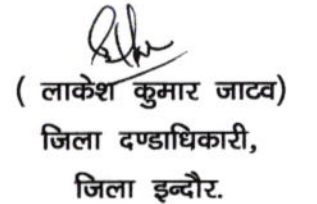 ( लाकेश कुमार जाटव)
जिला दण्डाधिकारी,
जिला इन्दौर.